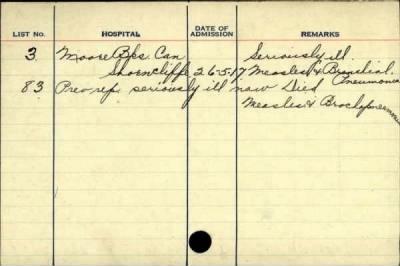 LIST No. HOSPITAL DATE OF ADMISSION REMARKS
3 Moore Bks. Can Seriously ill.
Shorncliffe 26-5-17 Measles & Bronchial
Pneumonia
83 Prev rep. seriously ill now Died
Measles &